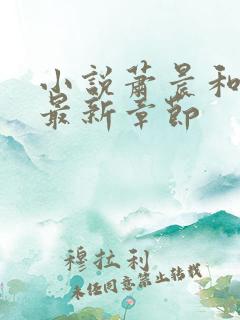 小説蕭晨和
最新章節
穆拉利
未任同意禁止转载